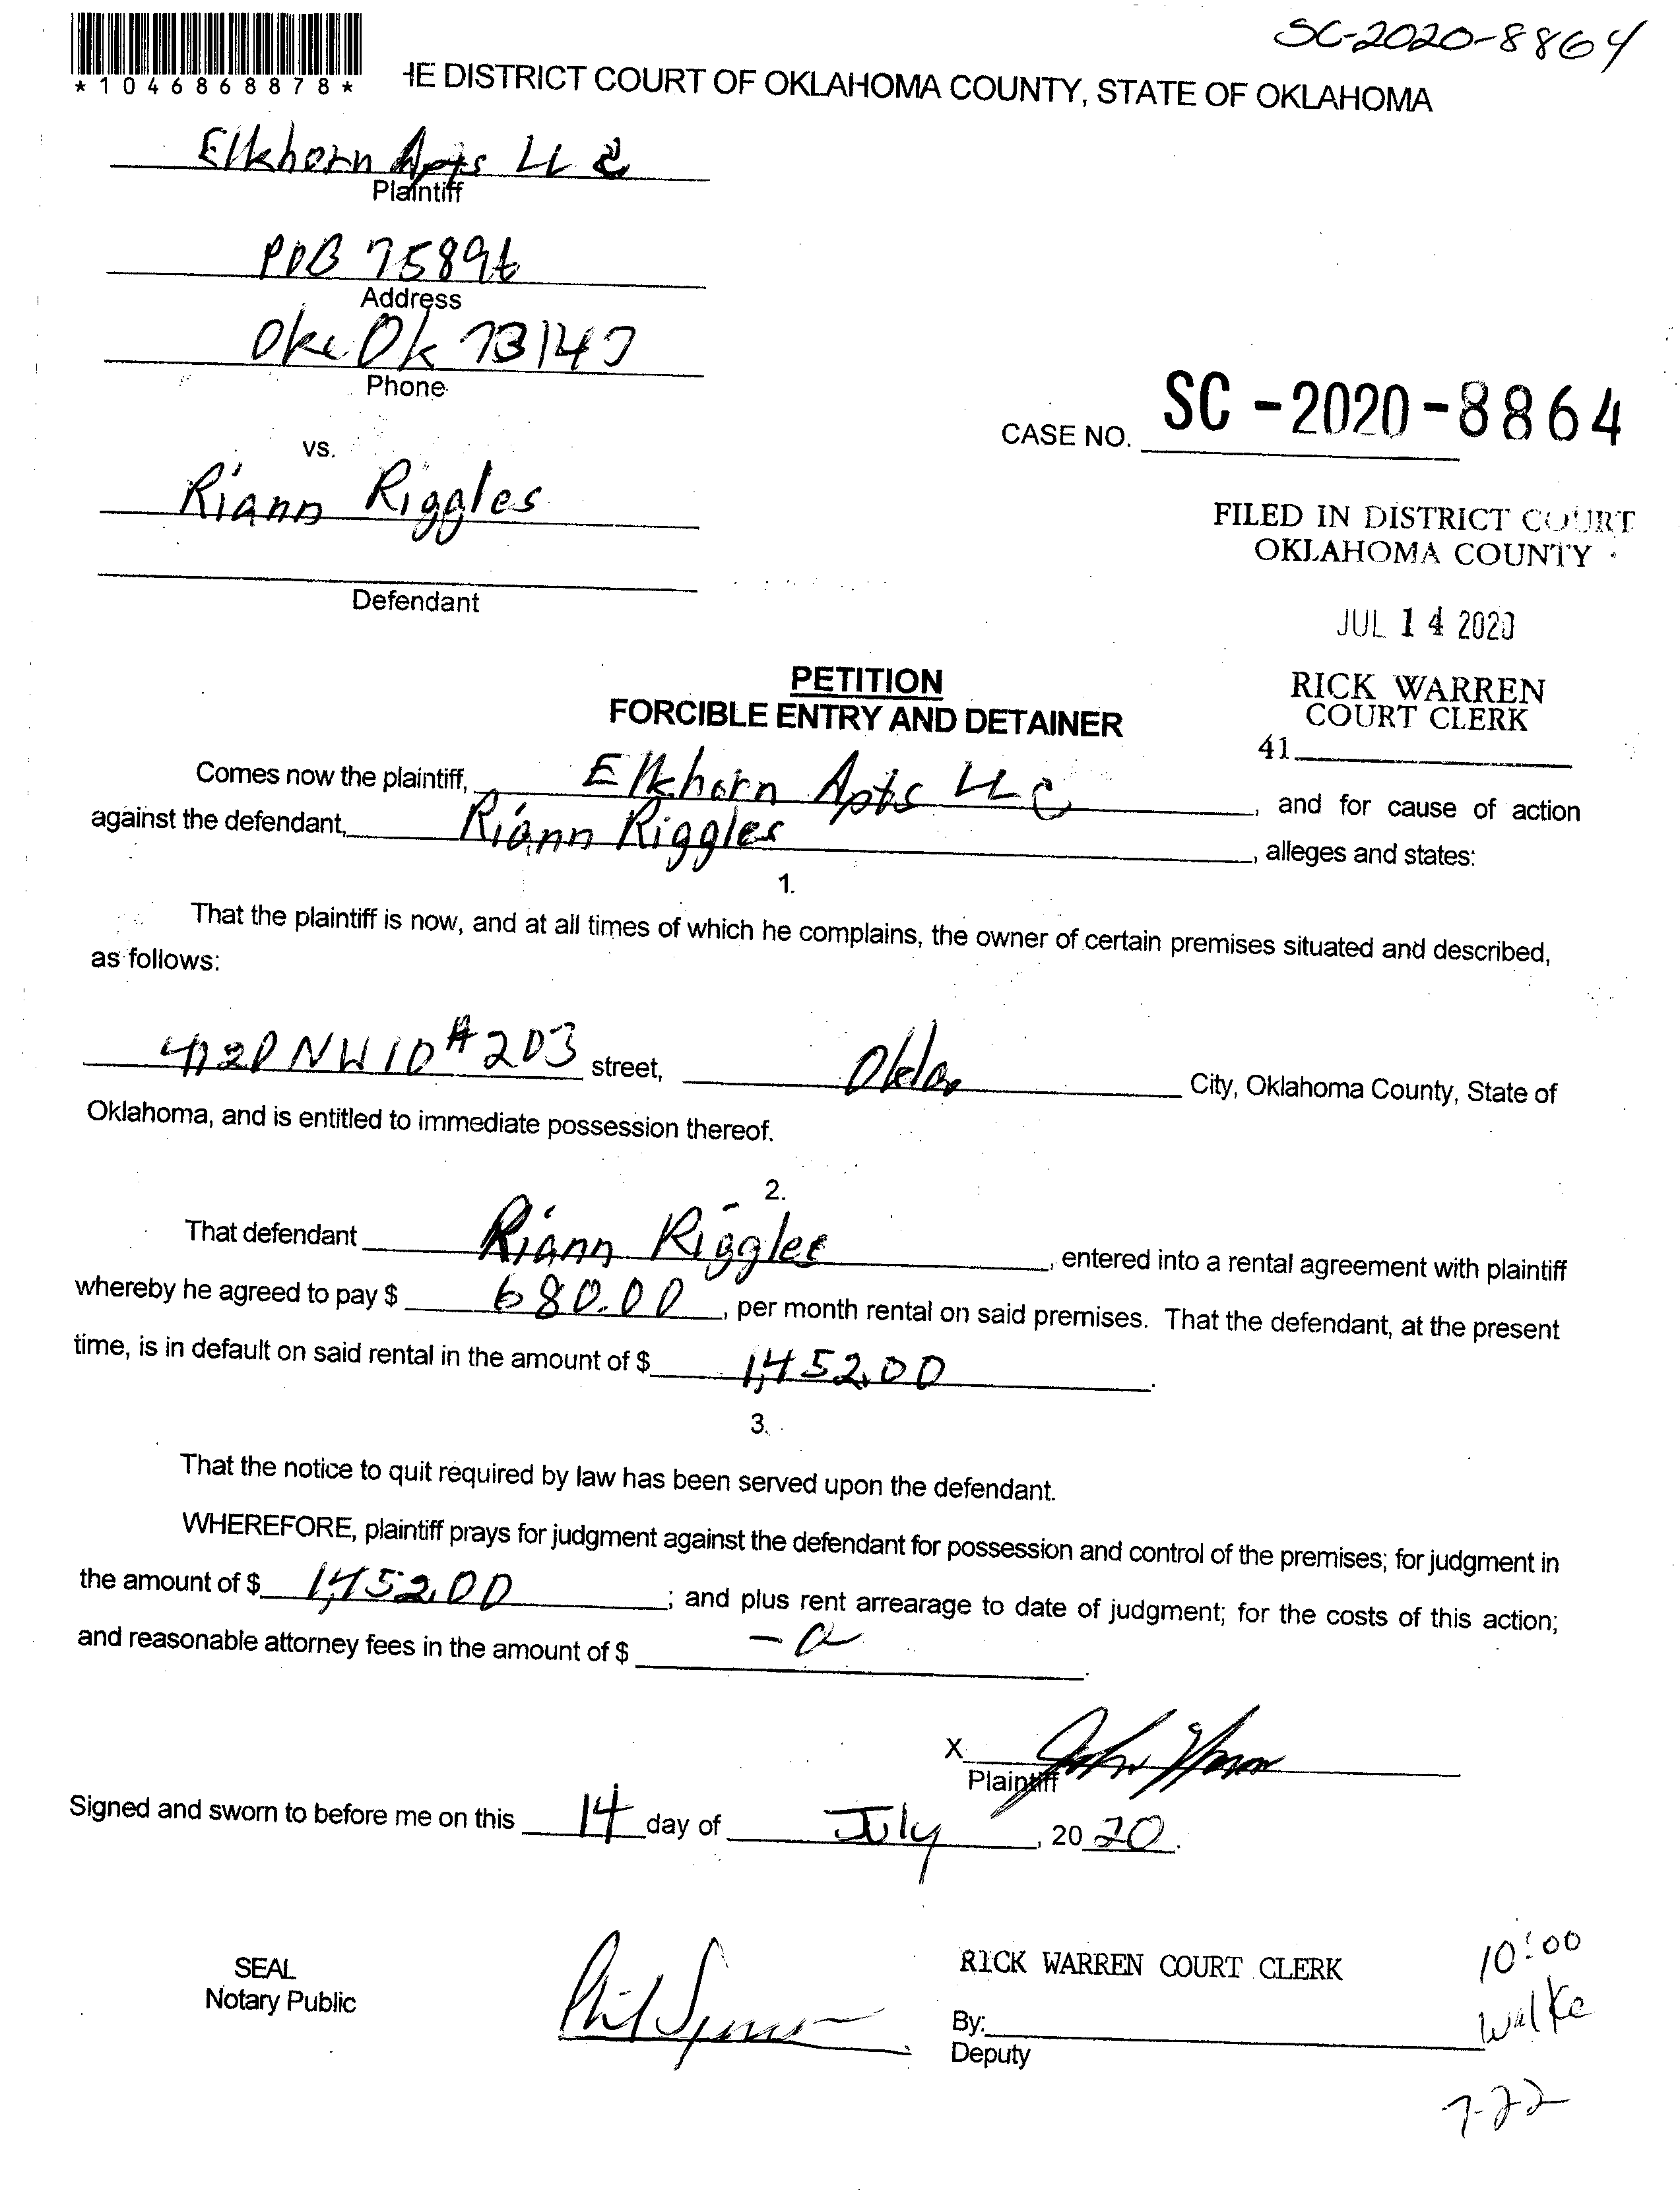 SC-2020-8864
*1046868878*
HE DISTRICT COURT OF OKLAHOMA COUNTY, STATE OF OKLAHOMA
Elkhorn Apts LLC
Plaintiff
POB 75896
Address
Okc Ok 73147
Phone
CASE NO. SC-2020-8864
vs.
Riann Riggles
Defendant
FILED IN DISTRICT COURT
OKLAHOMA COUNTY
JUL 14 2020
RICK WARREN
COURT CLERK
41
PETITION
FORCIBLE ENTRY AND DETAINER
Comes now the plaintiff, Elkhorn Apts LLC, and for cause of action
against the defendant, Riann Riggles, alleges and states:
1.
That the plaintiff is now, and at all times of which he complains, the owner of certain premises situated and described,
as follows:
4120 NW 10 #203 street, City, Oklahoma County, State of
Oklahoma, and is entitled to immediate possession thereof.
2.
That defendant Riann Riggles, entered into a rental agreement with plaintiff
whereby he agreed to pay $ 680.00, per month rental on said premises. That the defendant, at the present
time, is in default on said rental in the amount of $ 1,452.00.
3.
That the notice to quit required by law has been served upon the defendant.
WHEREFORE, plaintiff prays for judgment against the defendant for possession and control of the premises; for judgment in
the amount of $ 1,452.00; and plus rent arrearage to date of judgment; for the costs of this action;
and reasonable attorney fees in the amount of $ -0.
X John
Plaintiff
Signed and sworn to before me on this 14 day of July, 2020.
SEAL
Notary Public
Phil
RICK WARREN COURT CLERK
By:
Deputy
10:00
Walke
7-22